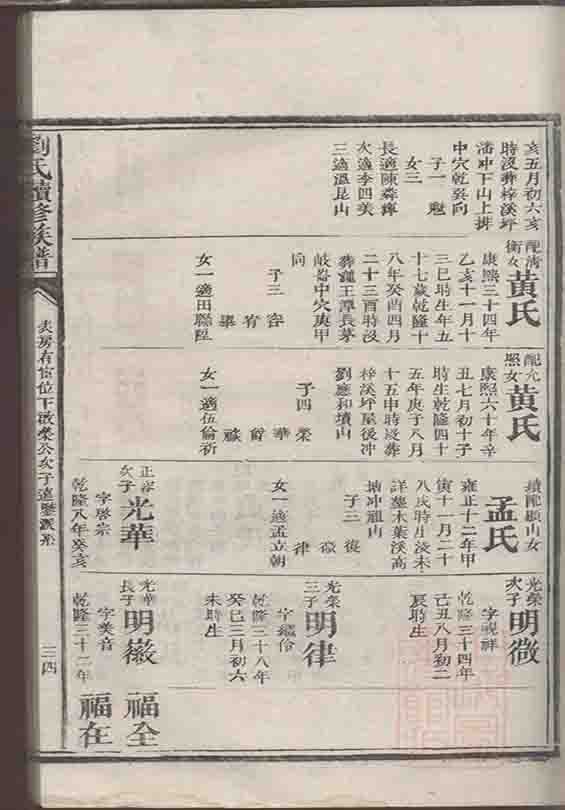 亥五月初六亥
時沒葬梓溪坪
潘冲下山上排
中穴乾巽向
子一
女三
長適陳
次適李四美
三適溫昆山
配清
衡女
黃氏
康熙三十四年
乙亥十一月十
三巳時生年五
十七歲乾隆十
八年癸酉四月
二十三酉時沒
葬鍾王潭長茅
中穴庚甲
向
子三
容
宥
畢
女一適田聯陞
配允
熙女
黃氏
康熙六十年辛
丑七月初十子
時生乾隆四十
五年庚子八月
十五申時沒葬
梓溪坪屋後冲
劉應和墳山
子四
榮
華
女一適伍倫祈
續配顯山女
孟氏
雍正十二年甲
寅十一月二十
八戌時生沒未
詳葬木葉溪高
冲祖山
子三
復
徵
律
女一適孟立朝
正
次子
光華
字啓宗
乾隆八年癸亥
光榮
次子
明徵
字祥
乾隆三十四年
己丑八月初二
辰時生
光榮
三子
明律
字繼伶
乾隆三十八年
癸巳三月六
未時生
光華
長子
明徽
字美音
乾隆三十二年
福全
福在
劉氏續修族譜
三四